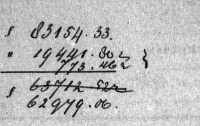 $ 83154.33.
" 19441.80½
733.46½ }
$ 63712.52½
62979.06.